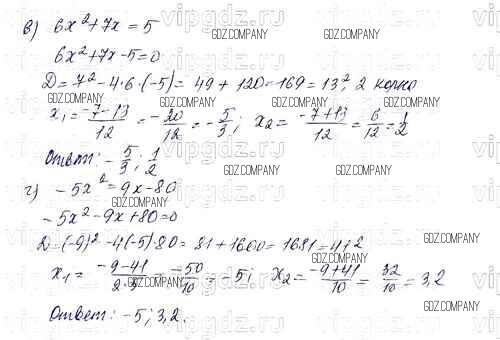 в) 6x² + 7x = 5
6x² + 7x - 5 = 0
D = 7² - 4·6·(-5) = 49 + 120 = 169 = 13², 2 корня
x₁ = (-7-13)/12 = -20/12 = -5/3; x₂ = (-7+13)/12 = 6/12 = 1/2
Ответ: -5/3; 1/2
г) -5x² = 9x - 80
-5x² - 9x + 80 = 0
D = (-9)² - 4(-5)·80 = 81 + 1600 = 1681 = 41²
x₁ = (-9-41)/(2·5) = -50/10 = -5; x₂ = (-9+41)/10 = 32/10 = 3,2
Ответ: -5; 3,2.
vipgdz.ru
GDZ.COMPANY